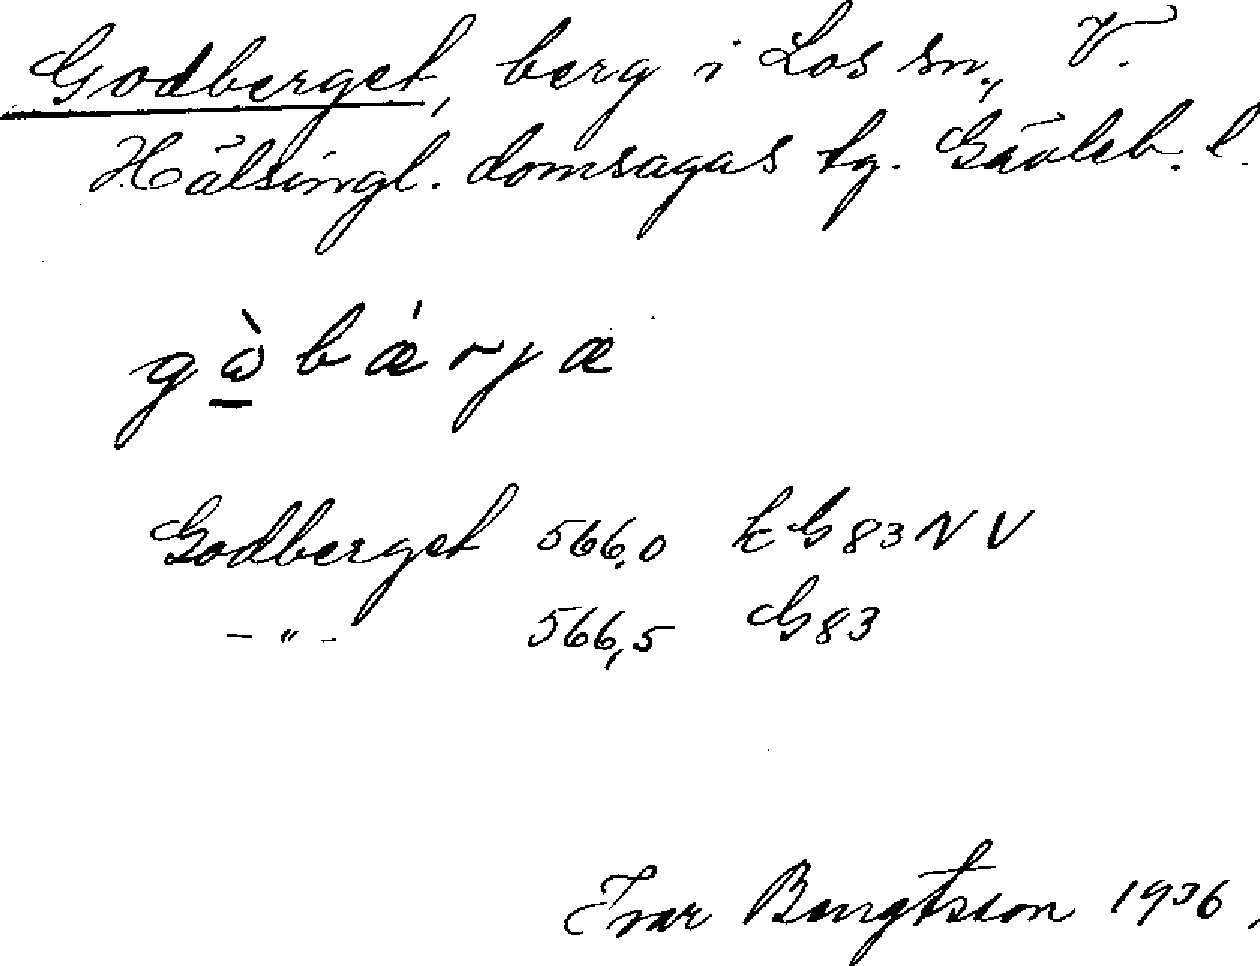 Godberget, berg i Los sn., V.
Hälsingl. domsagas tg. Gävleb. l.
gòbárjæ
Godberget 566,0 EG83NV
-"- 566,5 G83
Ivar Bengtsson 1936.